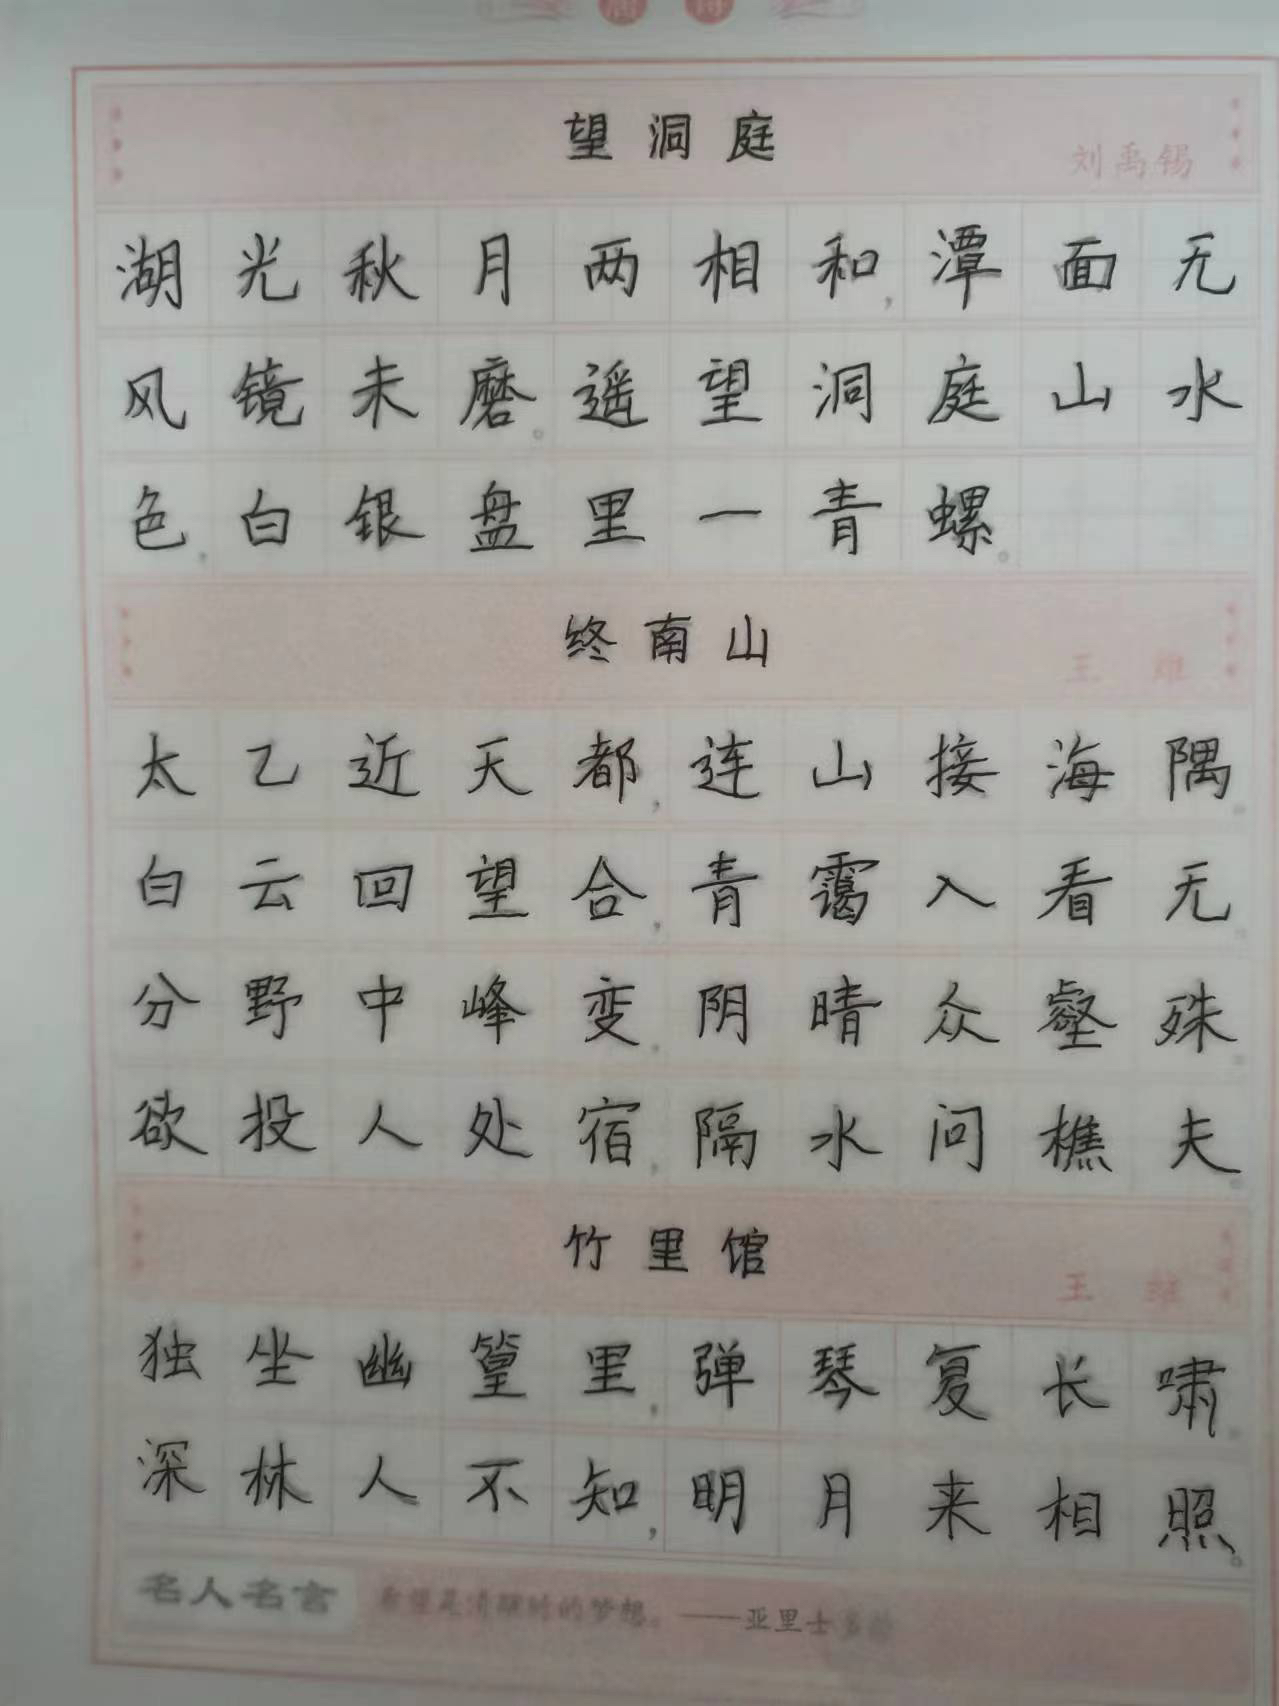 望洞庭
刘禹锡
湖光秋月两相和,潭面无
风镜未磨。遥望洞庭山水
色,白银盘里一青螺。
终南山
王维
太乙近天都,连山接海隅。
白云回望合,青霭入看无。
分野中峰变,阴晴众壑殊。
欲投人处宿,隔水问樵夫。
竹里馆
王维
独坐幽篁里,弹琴复长啸。
深林人不知,明月来相照。
名人名言
希望是清醒时的梦想。——亚里士多德